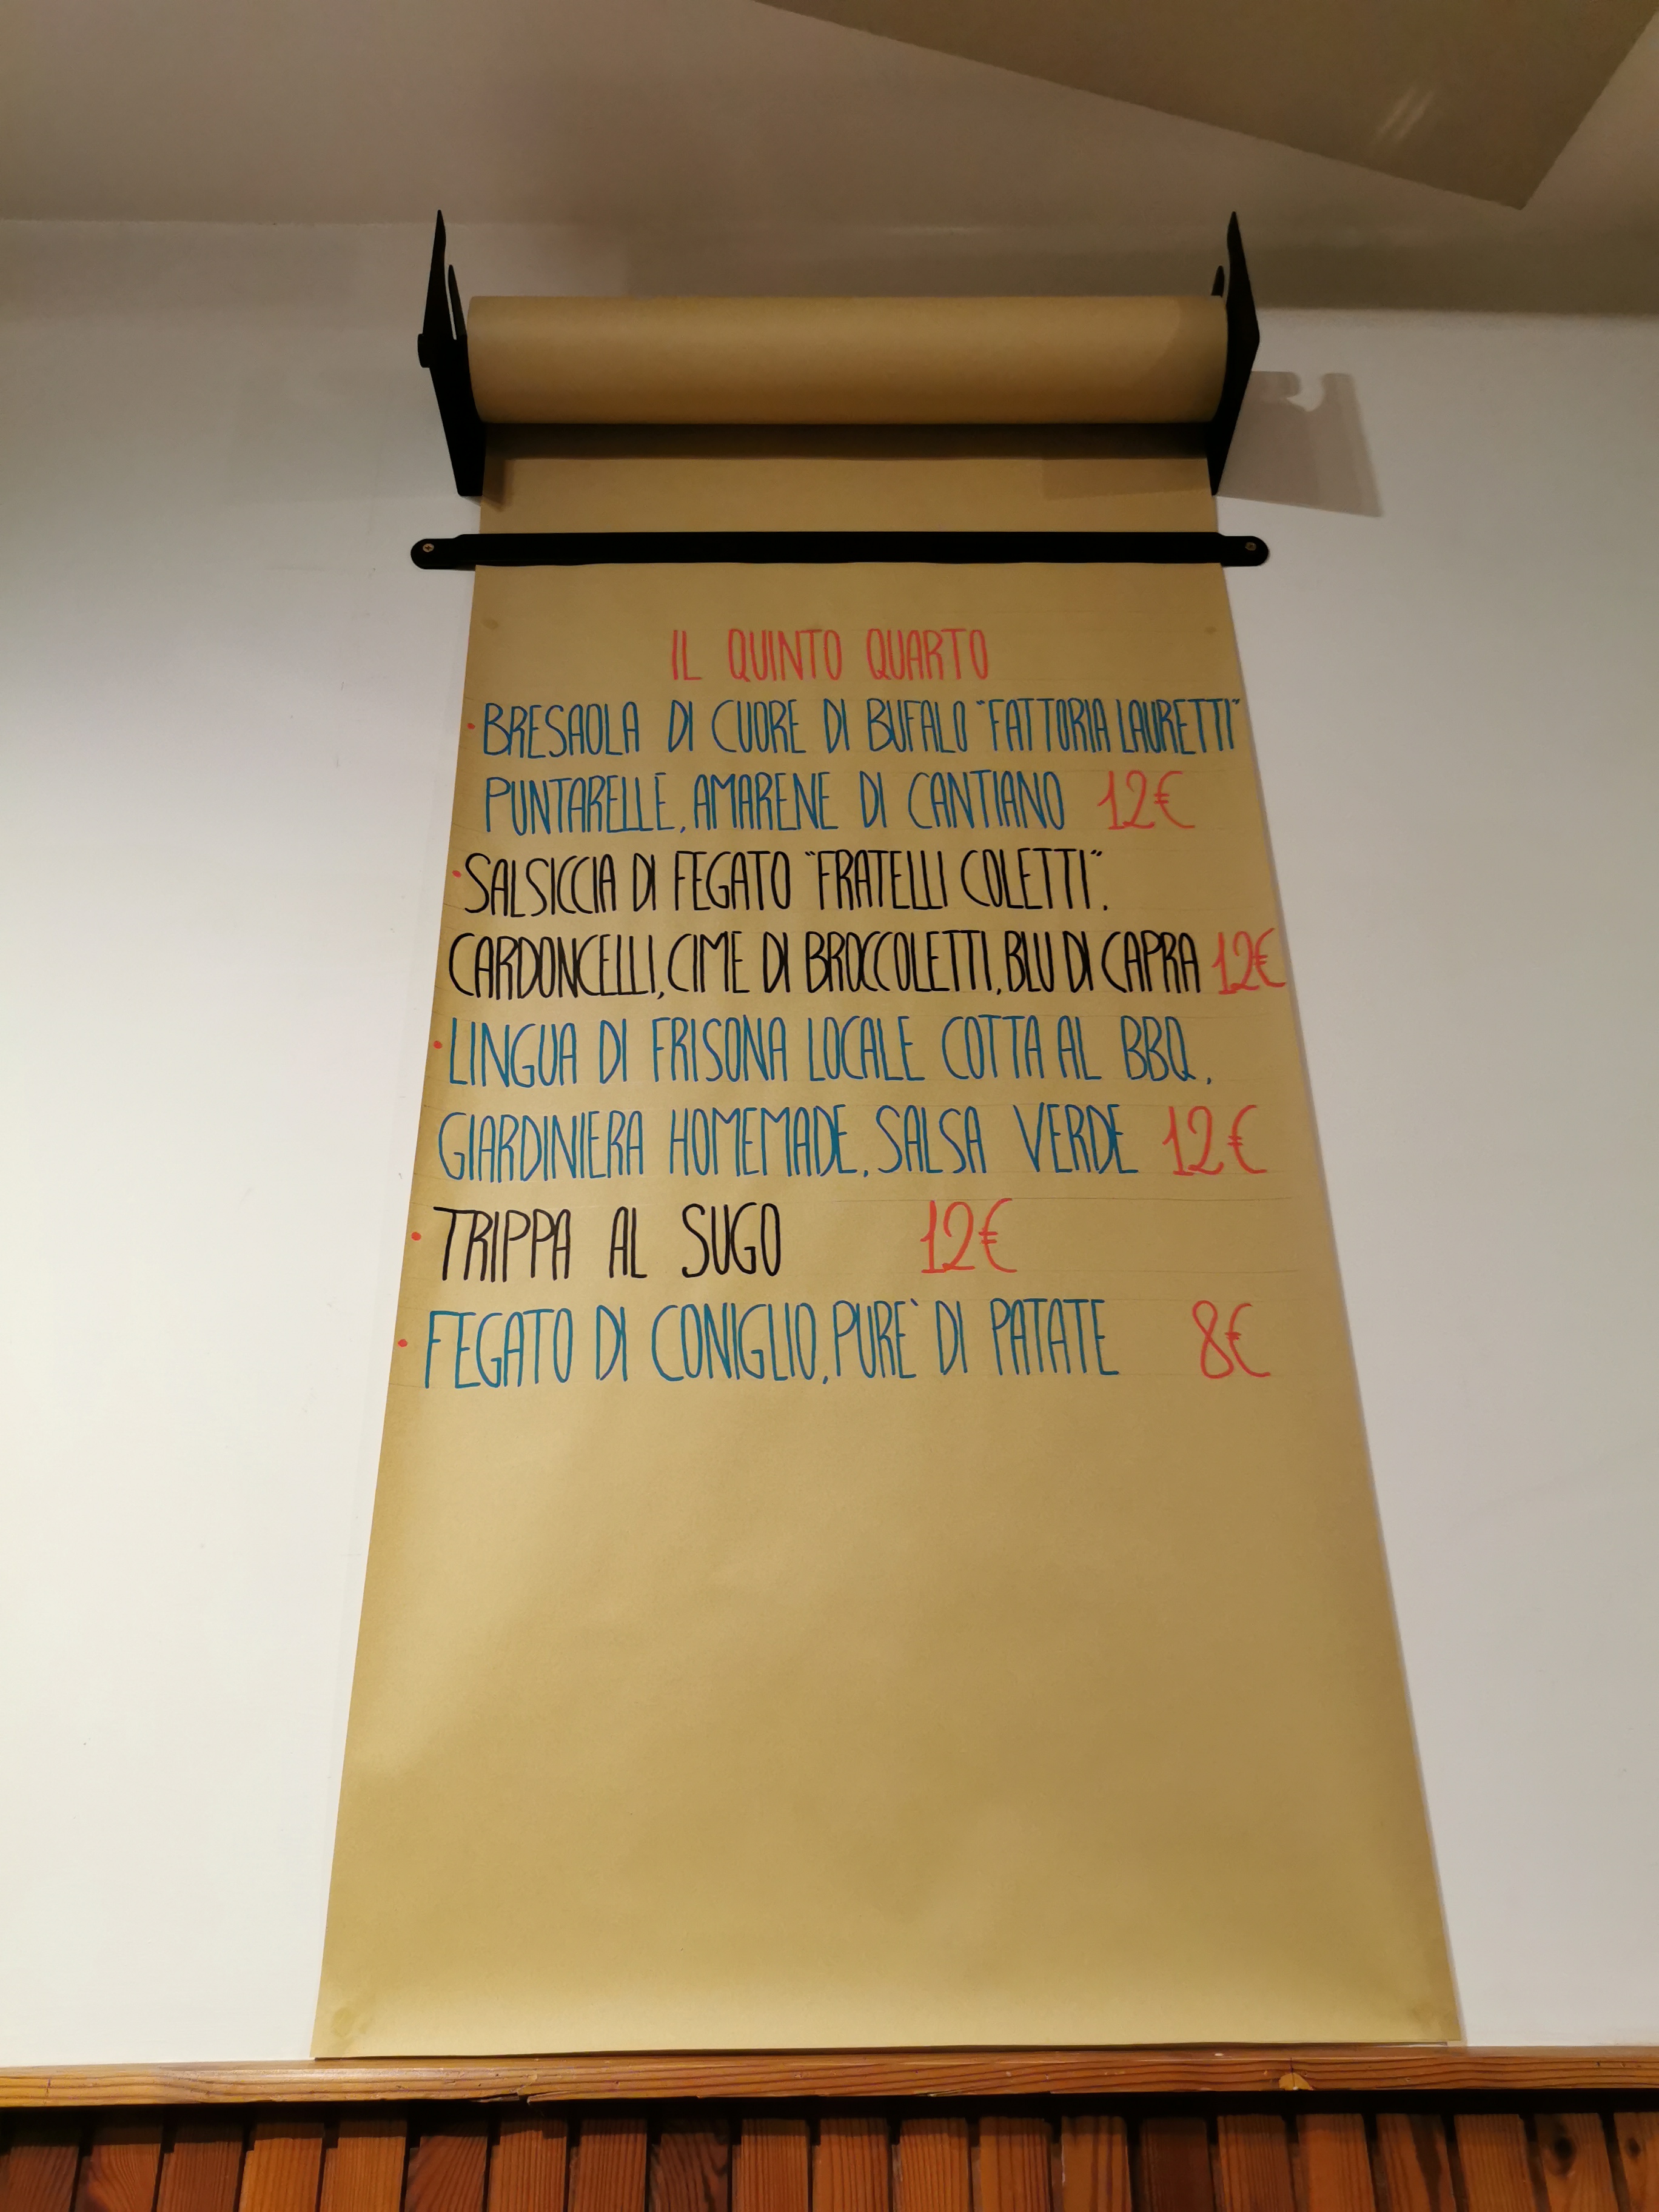 IL QUINTO QUARTO
• BRESAOLA DI CUORE DI BUFALO "FATTORIA LAURETTI"
PUNTARELLE, AMARENE DI CANTIANO 12€
• SALSICCIA DI FEGATO "FRATELLI COLETTI",
CARDONCELLI, CIME DI BROCCOLETTI, BLU DI CAPRA 12€
• LINGUA DI FRISONA LOCALE COTTA AL BBQ,
GIARDINIERA HOMEMADE, SALSA VERDE 12€
• TRIPPA AL SUGO 12€
• FEGATO DI CONIGLIO, PURE` DI PATATE 8€